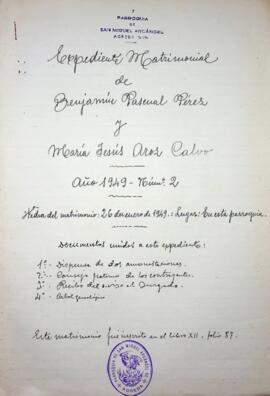 PARROQUIA
DE
SAN MIGUEL ARCÁNGEL
AGREDA
Expediente Matrimonial
de
Benjamín Pascual Pérez
y
María Jesús Aroz Calvo
Año 1949 - Núm. 2
Fecha del matrimonio: 26 de enero de 1949. = Lugar: En esta parroquia.
Documentos unidos a este expediente:
1º- Dispensa de dos amonestaciones.
2º- Consejo paterno de los contrayentes.
3º- Recibo del aviso al Juzgado.
4º- Arbol genealógico
Este matrimonio fué inscrito en el libro XII, folio 87.
PARROQUIA DE SAN MIGUEL ARCÁNGEL
AGREDA